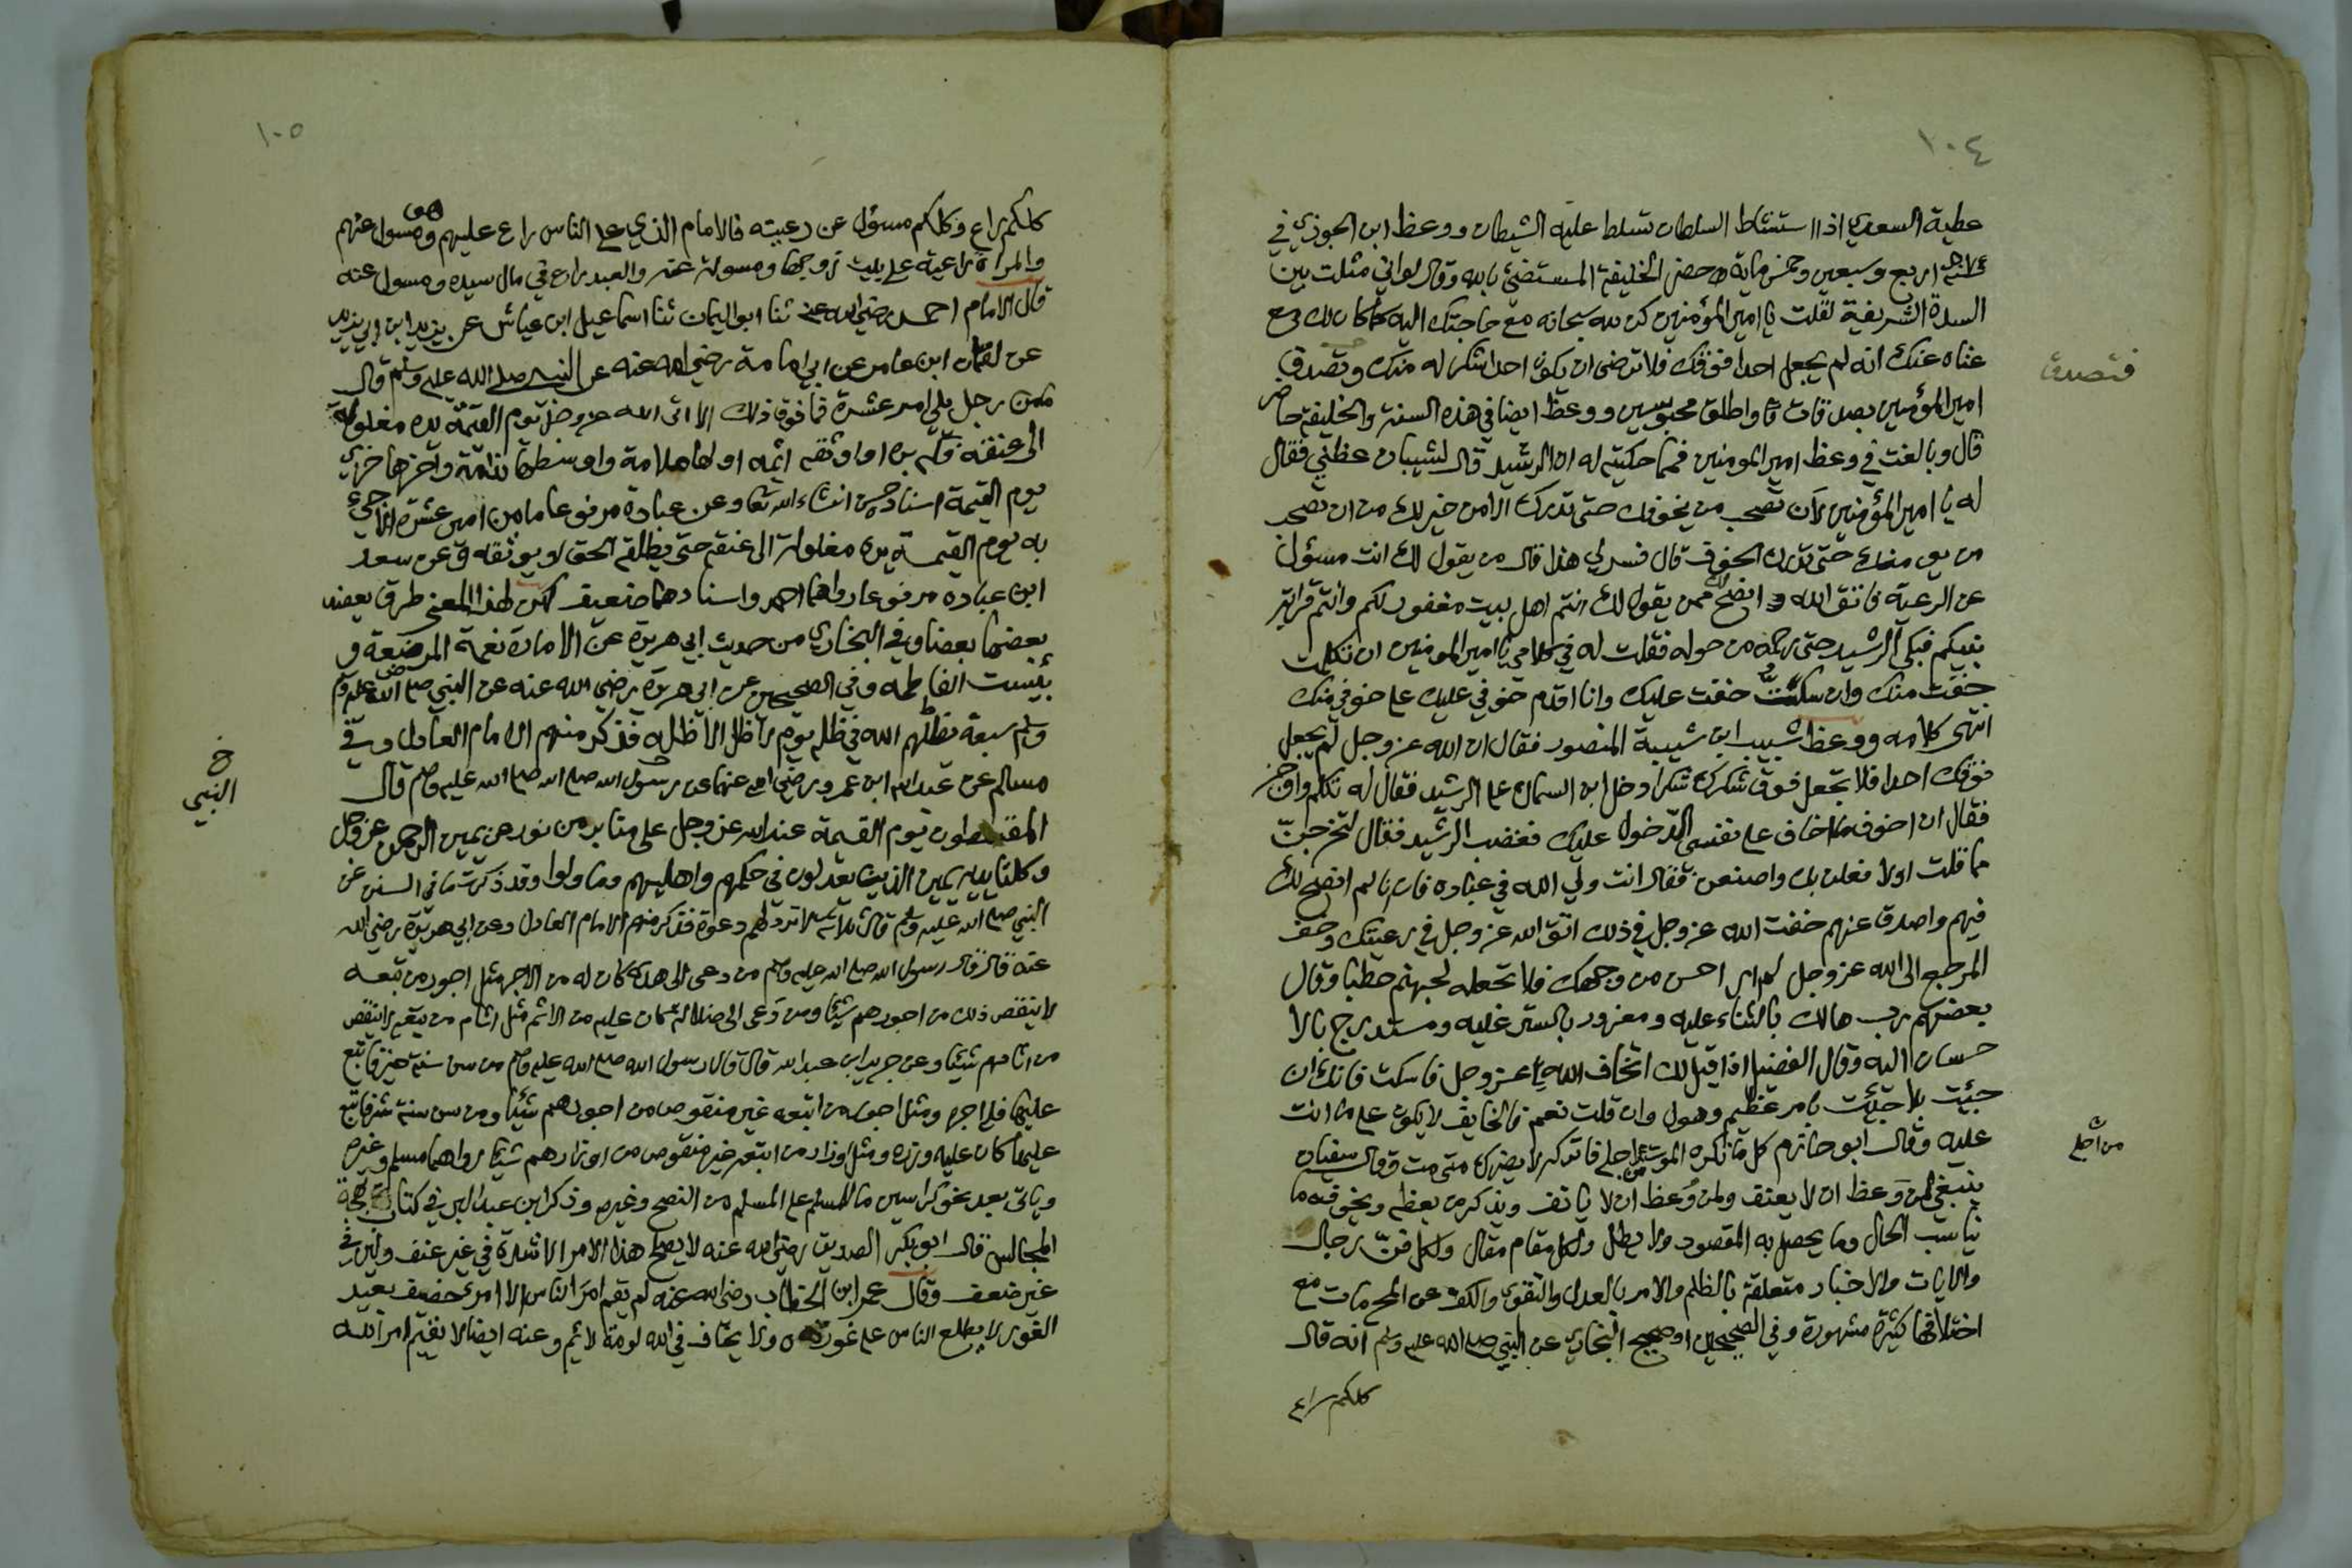 ١٠٤
عطية السعدي اذا استشاط السلطان تسلط عليه الشيطان ووعظ ابن الجوزي في
سنة اربع وسبعين وخمس ماية حضر الخليفة المستضئ بالله وقال لواني مثلت بين
السدة الشريفة لقلت يا امير المؤمنين كن لله سبحانه مع حاجتك اليه كما كان لك مع
غناه عنك انه لم يجعل احدا فوقك فلا ترضى ان يكون احدا شكر له منك وتصدق
فتصدق
امير المؤمنين بصدقات واطلق محبوسين ووعظ ايضا في هذه السنة والخليفة حاضر
قال وبالغت في وعظ امير المومنين فمما حكيته له ان الرشيد قال لشيبان عظني فقال
له يا امير المؤمنين لان تصحب من يخوفك حتى تدرك الامن خير لك من ان تصحب
من يومنك حتى تدرك الخوف قال فسر لي هذا قال من يقول لك انت مسؤل
عن الرعية فاتق الله انصح لك ممن يقول لك انتم اهل بيت مغفور لكم وانتم قرابة
نبيكم فبكى الرشيد حتى رحمه من حوله فقلت له في كلامي يا امير المومنين ان تكلمت
خفت منك وان سكتُّ خفت عليك وانا اقدم خوفي عليك على خوفي منك
انتهى كلامه ووعظ شبيب ابن شيبة المنصور فقال ان الله عز وجل لم يجعل
فوقك احدا فلا تجعل فوق شكرك شكرا دخل ابن السماك على الرشيد فقال له تكلم واوجز
فقال ان اخوف ما اخاف على نفسي الدخول عليك فغضب الرشيد فقال لتخرجنّ
مما قلت اولا فعلن بك واصنعن فقال انت ولي الله في عباده فان انا لم انصح لك
فيهم واصدق عنهم خفت الله عز وجل في ذلك اتق الله عز وجل في رعيتك وخف
المرجع الى الله عز وجل لم ار احسن من وجهك فلا تجعله لجهنم حطبا وقال
بعضهم رب هالك بالثناء عليه ومغرور بالستر عليه ومستدرج بالا
حسان اليه وقال الفضيل اذا قيل لك اتخاف الله عز وجل فاسكت فانك ان
جئت بلا جئت بامر عظيم وهول وان قلت نعم فالخايف لا يكون على ما انت
عليه وقال ابو حازم كل ما تكره الموت من اجله فاتركه لا يضرك متى مت وقال سفيان
من اجله
ينبغي لمن وَعظ ان لا يعنف ولمن وُعظ ان لا يانف ويذكر من يعظه ويخوفه ما
يناسب الحال وما يحصل به المقصود ولا يطل ولكل مقام مقال ولكل فنّ رجال
والايات والاخبار متعلقة بالظلم والامر بالعدل والتقوى والكف عن المحرمات مع
اختلافها كثيرة مشهورة وفي الصحيحين او صحيح البخاري عن النبي صلى الله عليه وسلم انه قال
كلكم راع
١٠٥
كلكم راع وكلكم مسؤل عن رعيته فالامام الذي على الناس راع عليهم وهو مسول عنهم
والمراة راعية على بيت زوجها ومسولة عنه والعبد راع في مال سيده ومسول عنه
قال الامام احمد رضي الله عنه ثنا ابو اليمان ثنا اسماعيل ابن عياش عن يزيد ابن ابي يزيد
عن لقمان ابن عامر عن ابي امامة رضي الله عنه عن النبي صلى الله عليه وسلم قال
ما من رجل يلي امر عشرة فما فوق ذلك الا اتى الله عز وجل يوم القيمة يده مغلولة
الى عنقه فكه بره او اوثقه اثمه اولها ملامة واوسطها ندامة واخرها خزي
يوم القيمة اسناد حسن انشاء الله تعا وعن عبادة مرفوعا ما من امير عشرة الا جئ
به يوم القيمة يده مغلولة الى عنقه حتى يطلقه الحق او يوثقه وعن سعد
ابن عباده مرفوعا رواهما احمد واسنادهما ضعيف لكن لهذا المعنى طرق يعضد
بعضها بعضا وفي البخاري من حديث ابي هريرة عن الامارة نعمة المرضعة و
بئست الفاطمه وفي الصحيحين عن ابي هريرة رضي الله عنه عن النبي صلى الله عليه وسلم
وسلم سبعة يظلهم الله في ظله يوم لا ظل الا ظله فذكر منهم الامام العادل وفي
مسلم عن عبد الله ابن عمرو رضي الله عنهما عن رسول الله صلى الله عليه وسلم قال
خ
النبي
المقسطون يوم القيمة عند الله عز وجل على منابر من نور عن يمين الرحمن عز وجل
وكلتا يديه يمين الذين يعدلون في حكمهم واهليهم وما ولوا وقد ذكرت ما في السنن عن
النبي صلى الله عليه وسلم قال ثلاثة لا ترد لهم دعوة فذكر منهم الامام العادل وعن ابي هريرة رضي الله
عنه قال قال رسول الله صلى الله عليه وسلم من دعى الى هدى كان له من الاجر مثل اجور من تبعه
لا ينقص ذلك من اجورهم شيئا ومن دعى الى ضلالة كان عليه من الاثم مثل اثام من تبعه لا ينقص
من اثامهم شيئا وعن جرير ابن عبد الله قال قال رسول الله صلى الله عليه وسلم من سن سنة خير فاتبع
عليها فله اجره ومثل اجور من اتبعه غير منقوص من اجورهم شيئا ومن سن سنة شر فاتبع
عليها كان عليه وزره ومثل اوزار من اتبعه غير منقوص من اوزارهم شيئا رواهما مسلم وغيره
وياتي بعد نحو كراسين ما للمسلم على المسلم من النصح وغيره وذكر ابن عبد البر في كتاب بهجة
المجالس قال ابو بكر الصديق رضي الله عنه لا يصلح هذا الامر الا شدة في غير عنف ولين في
غير ضعف وقال عمر ابن الخطاب رضي الله عنه لم يقم امر الناس الا امرئ حصيف بعيد
الغور لا يطلع الناس على عورة ولا يخاف في الله لومة لائم وعنه ايضا لا يقيم امر الله